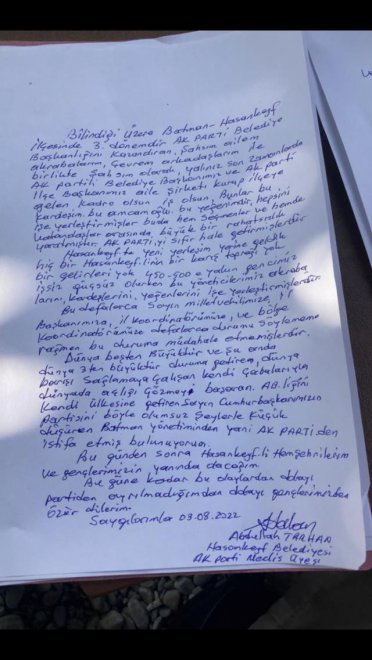 Bilindiği Üzere Batman-Hasankeyf
ilçesinde 3. dönemdir AK PARTİ Belediye
Başkanlığını Kazandıran, Şahsım ailem
akrabalarım, Çevrem arkadaşlarım ile
birlikte Şahsım olarak, yalnız son zamanlarda
AK Partili Belediye Başkanımız ve Ak parti
ilçe Başkanımız aile Şirketi kurup ilçeye
gelen Kadro olsun iş olsun, Bunlar bu
Kardeşim, bu amcamoğlu, bu yeğenimdir, hepsini
işe yerleştirmişler buda hem Seçmenler ve hemde
vatandaşlar arasında büyük bir rahatsızlık
yaratmışlar. AK PARTİ'yi sıfır hale getirmişlerdir
Hasankeyf te yeni yerleşim yerine gelik
hiç bir Hasankeyf'linin bir karış toprağı yok
bir gelirleri yok 450-500 e yakın gencimiz
işsiz güçsüz olurken bu yöneticilerimiz akraba
larını, kardeşlerini, yeğenlerini işe yerleştirmişlerdir.
Bu defalarca Sayın milletvekilimize, il
Başkanımıza, il koordinatörümüze, ve bölge
Koordinatörümüze defalarca durumu Söylememe
rağmen bu duruma müdahale etmemişlerdir.
Dünya beşten Büyüktür ve şu anda
dünya 3 ten büyüktür duruma getiren, dünya
barışı Sağlamaya Çalışan kendi Çabalarıyla
dünyada açlığı Çözmeyi başaran. AB.liğini
Kendi ülkesine getiren Sayın Cumhurbaşkanımızın
partisini böyle olumsuz Şeylerle Küçük
düşüren Batman yönetiminden yani AK PARTİ.den
istifa etmiş bulunuyorum.
Bu günden sonra Hasankeyf.li Hemşehrilerim
ve gençlerimizin yanında olacağım.
Bu güne kadar bu olaylardan dolayı
partiden ayrılmadığımdan dolayı gençlerimizden
Özür dilerim.
Saygılarımla 03.08.2022
Abdullah TARHAN
Hasankeyf Belediyesi
AK Parti Meclis Üyesi